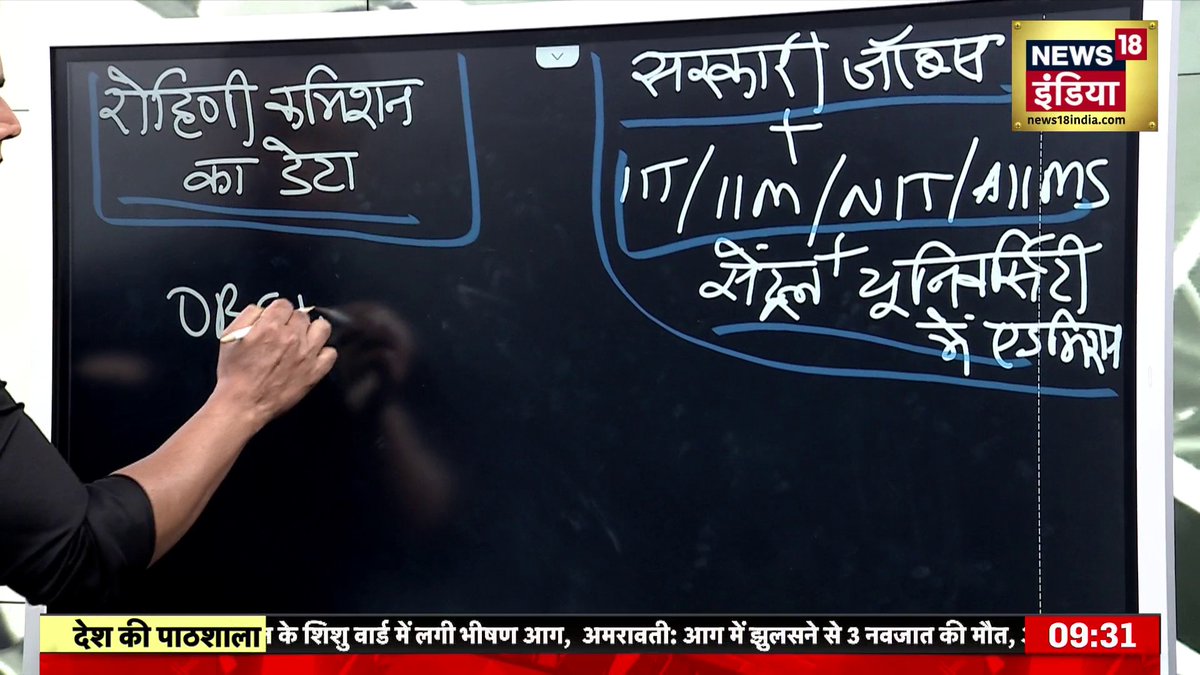 रोहिणी कमिशन
का डेटा
सरकारी जॉब्स
+
IIT/IIM/NIT/AIIMS
+
सेंट्रल यूनिवर्सिटी
में एडमिशन
NEWS 18
इंडिया
news18india.com
देश की पाठशाला
के शिशु वार्ड में लगी भीषण आग, अमरावती: आग में झुलसने से 3 नवजात की मौत,
09:31